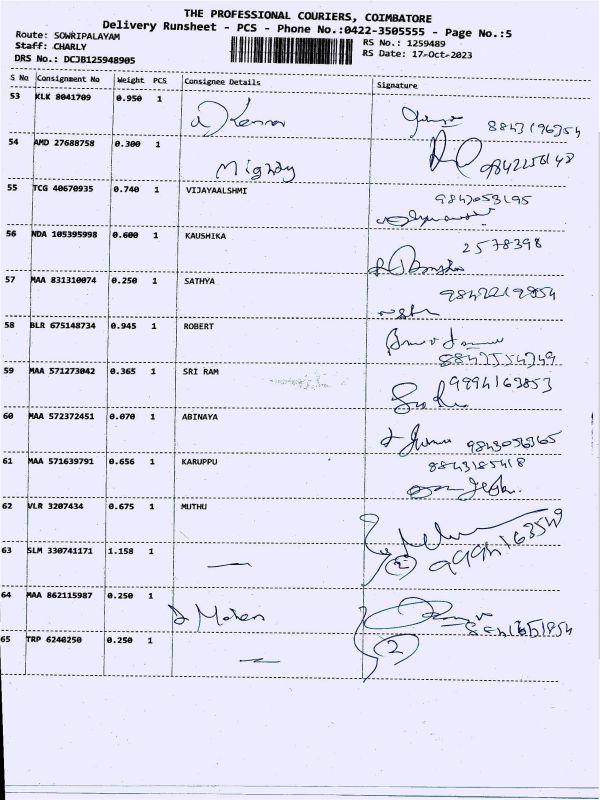 THE PROFESSIONAL COURIERS, COIMBATORE
Delivery Runsheet - PCS - Phone No.:0422-3505555 - Page No.:5
Route: SOWRIPALAYAM
Staff: CHARLY
DRS No.: DCJB125948905
RS No.: 1259489
RS Date: 17-Oct-2023
S No Consignment No Weight PCS Consignee Details Signature
53 KLK 8041709 0.950 1
8843196354
54 AMD 27688758 0.300 1 Mighty
9842256148
55 TCG 40670935 0.740 1 VIJAYAALSHMI 9843053195
56 NDA 105395998 0.600 1 KAUSHIKA 2578398
57 MAA 831310074 0.250 1 SATHYA 9842219854
58 BLR 675148734 0.945 1 ROBERT
8843554349
59 MAA 571273042 0.365 1 SRI RAM 9994163853
60 MAA 572372451 0.070 1 ABINAYA 9843056365
61 MAA 571639791 0.656 1 KARUPPU 8843185418
62 VLR 3207434 0.675 1 MUTHU
9994163549
63 SLM 330741171 1.158 1 — 2
64 MAA 862115987 0.250 1 A Mohan
65 TRP 6240250 0.250 1 — 2